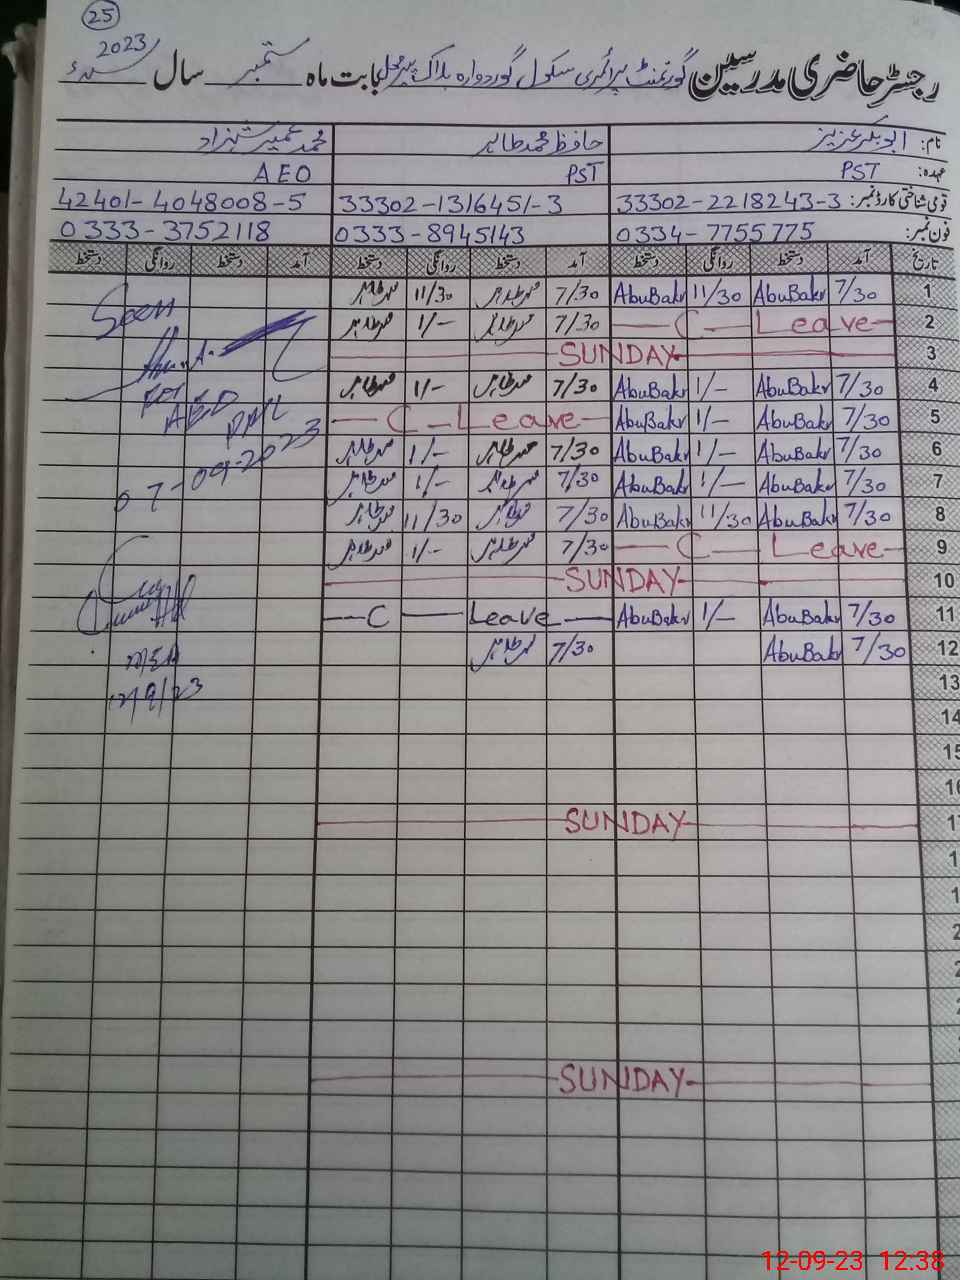 25
رجسٹر حاضری مدرسین گورنمنٹ پرائمری سکول گوردوارہ بلاک پیر محل بابت ماہ ستمبر سال 2023ء
نام: ابوبکر عزیز حافظ محمد طاہر محمد عمیر شہزاد
عہدہ: PST PST AEO
قومی شناختی کارڈ نمبر: 33302-2218243-3 33302-1316451-3 42401-4048008-5
فون نمبر: 0334-7755775 0333-8945143 0333-3752118
تاریخ آمد دستخط روانگی دستخط آمد دستخط روانگی دستخط آمد دستخط روانگی دستخط
1 7/30 AbuBakr 11/30 AbuBakr 7/30 محمد طاہر 11/30 محمد طاہر
2 C Leave 7/30 محمد طاہر 1/- محمد طاہر
3 SUNDAY
4 7/30 AbuBakr 1/- AbuBakr 7/30 محمد طاہر 1/- محمد طاہر
5 7/30 AbuBakr 1/- AbuBakr C Leave
6 7/30 AbuBakr 1/- AbuBakr 7/30 محمد طاہر 1/- محمد طاہر
7 7/30 AbuBakr 1/- AbuBakr 7/30 محمد طاہر 1/- محمد طاہر
8 7/30 AbuBakr 11/30 AbuBakr 7/30 محمد طاہر 11/30 محمد طاہر
9 C Leave 7/30 محمد طاہر 1/- محمد طاہر
10 SUNDAY
11 7/30 AbuBakr 1/- AbuBakr C Leave
12 7/30 AbuBakr 7/30 محمد طاہر
13
14
15
16
SUNDAY
SUNDAY
Seen
AEO
07-09-2023
MEA
12/9/23
12-09-23 12:38